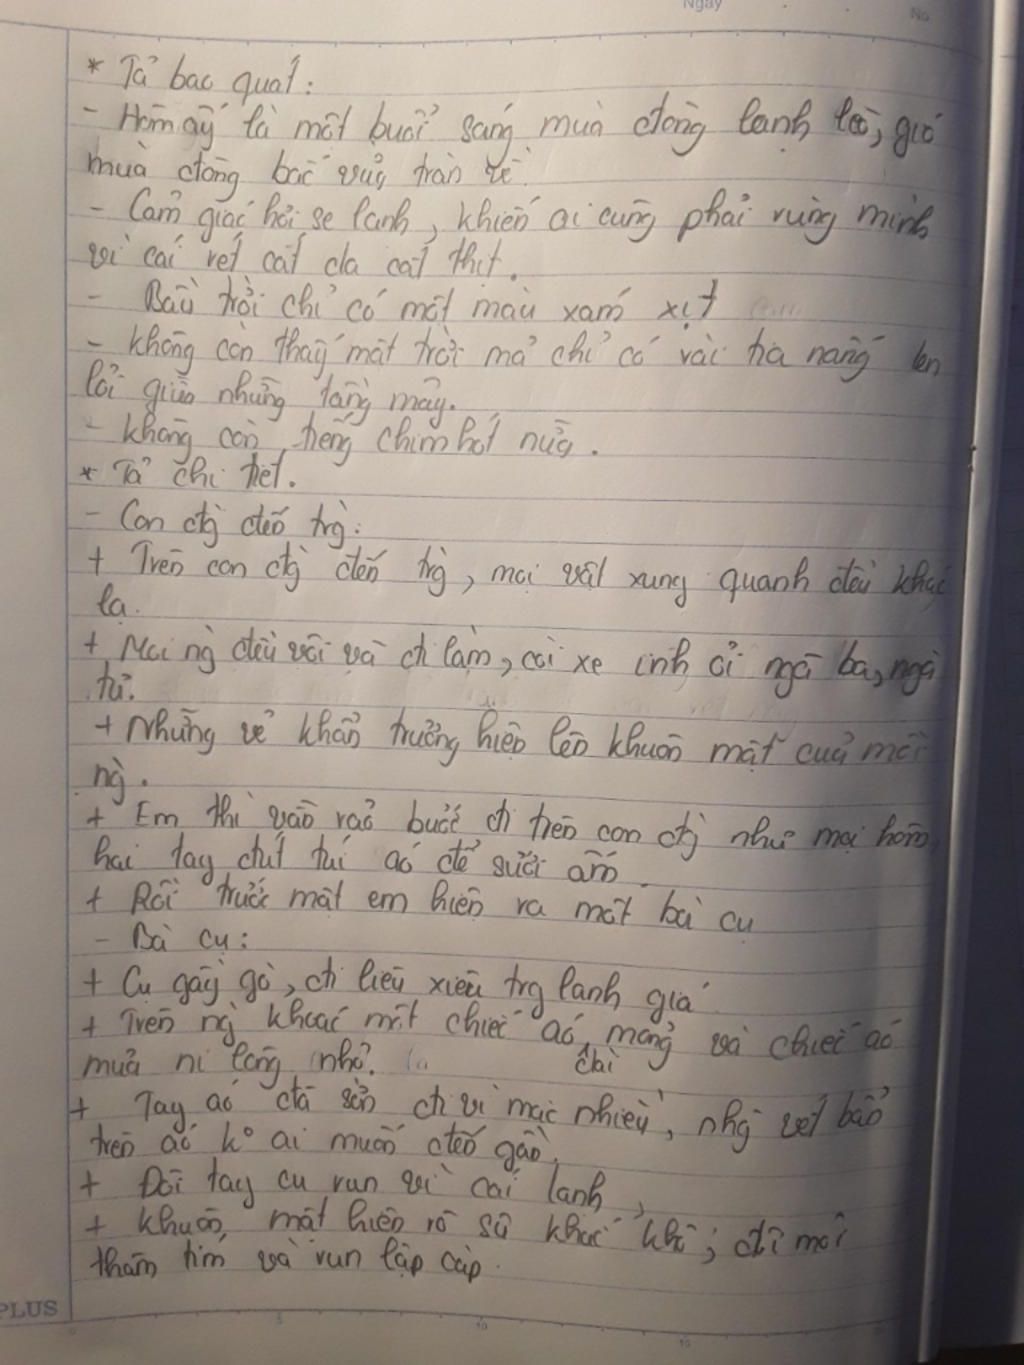 Ngày
No
* Tả bao quát:
- Hôm ấy là một buổi sáng mùa đông lạnh lẽo, gió
mùa đông bắc vừa tràn về.
- Cảm giác hơi se lạnh, khiến ai cũng phải rùng mình
vì cái rét cắt da cắt thịt.
- Bầu trời chỉ có một màu xám xịt
- không còn thấy mặt trời mà chỉ có vài tia nắng len
lỏi giữa những tầng mây.
- không còn tiếng chim hót nữa.
* Tả chi tiết.
- Con đg đến trg:
+ Trên con đg đến trg, mọi vật xung quanh đều khác
lạ.
+ Mọi ng đều vội vã đi làm, còi xe inh ỏi ngã ba, ngã
tư.
+ Những vẻ khẩn trương hiện lên khuôn mặt của mỗi
ng.
+ Em thì vẫn rảo bước đi trên con đg như mọi hôm,
hai tay đút túi áo để sưởi ấm
+ Rồi trước mặt em hiện ra một bà cụ
- Bà cụ:
+ Cụ gầy gò, đi liêu xiêu trg lạnh giá
+ Trên ng khoác một chiếc áo mỏng và chiếc áo
mưa ni lông nhỏ.
dài
+ Tay áo đã sờn đi vì mặc nhiều, nhg vết bẩn
trên áo ko ai muốn đến gần.
+ Đôi tay cụ run vì cái lạnh,
+ khuôn mặt hiện rõ sự khắc khổ; đôi môi
thâm tím và run lập cập.
PLUS
5
10
15